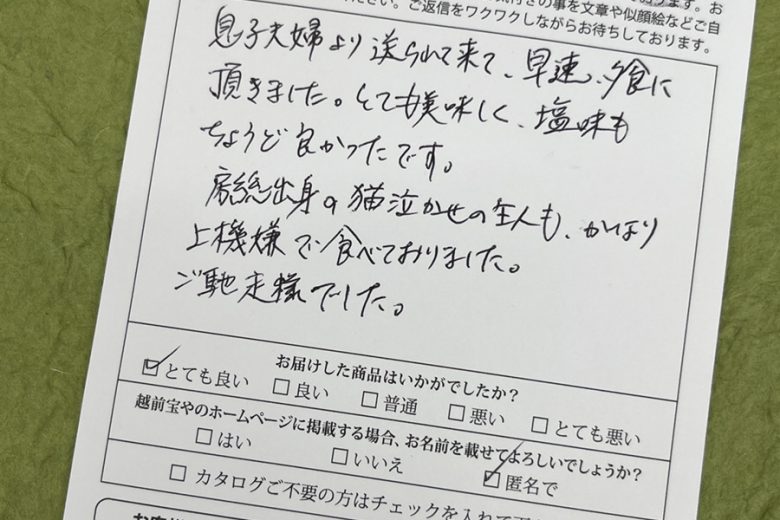 の事を文章や似顔絵などご自
ださい。ご返信をワクワクしながらお待ちしております。
息子夫婦より送られて来て、早速、夕食に
頂きました。とても美味しく、塩味も
ちょうど良かったです。
房総出身の猫泣かせの主人も、かなり
上機嫌で食べておりました。
ご馳走様でした。
お届けした商品はいかがでしたか？
☑とても良い □良い □普通 □悪い □とても悪い
越前宝やのホームページに掲載する場合、お名前を載せてよろしいでしょうか？
□はい □いいえ ☑匿名で
□カタログご不要の方はチェックを入れて